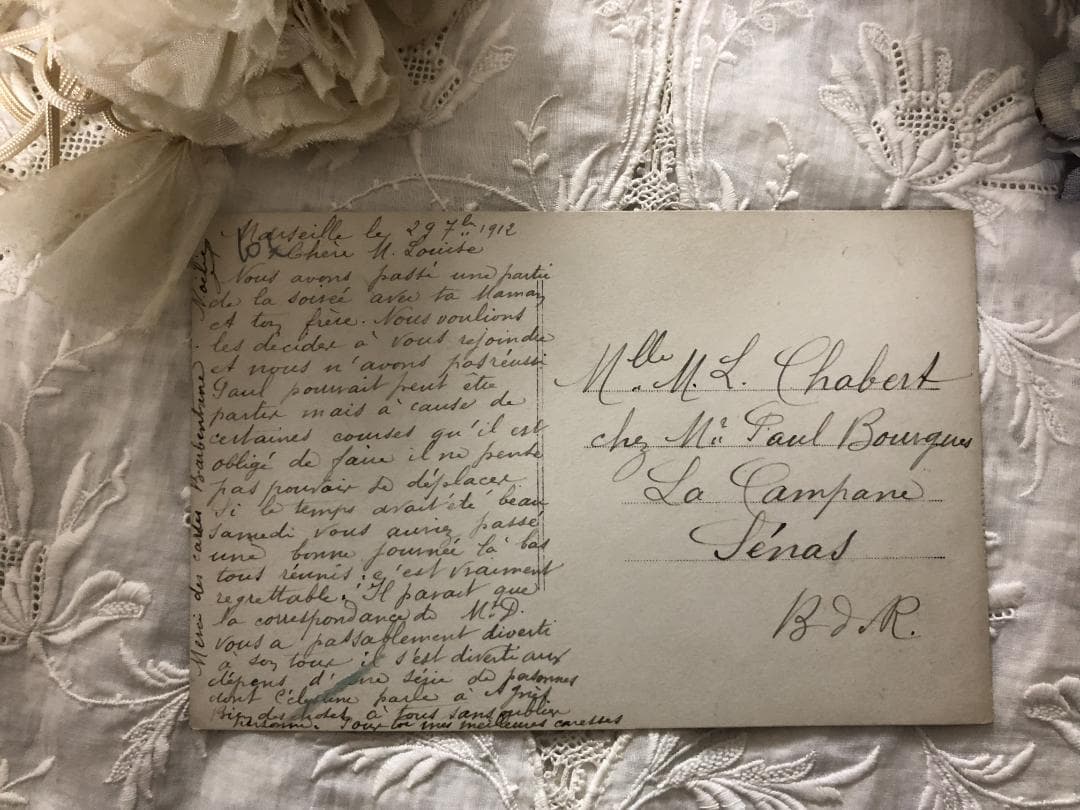 Marseille le 29 7bre 1912
Chère M. Louise
Nous avons passé une partie
de la soirée avec ta Maman
et ton frère. Nous voulions
les décider à vous rejoindre
et nous n'avons pas réussi
Paul pourrait peut être
partir mais à cause de
certaines courses qu'il est
obligé de faire il ne pense
pas pouvoir se déplacer
Si le temps avait été beau
samedi vous auriez passé
une bonne journée là bas
tous réunis; c'est vraiment
regrettable. Il parait que
la correspondance de Mr D.
vous a passablement diverti
à son tour il s'est diverti aux
dépens d'une série de personnes
dont l'une parle à
Bien des choses à tous sans oublier
personne. Pour toi mes meilleures caresses
Merci des cartes Barbentane
Mlle M. L. Chabert
chez Mr Paul Bourgues
La Campane
Sénas
B d R.